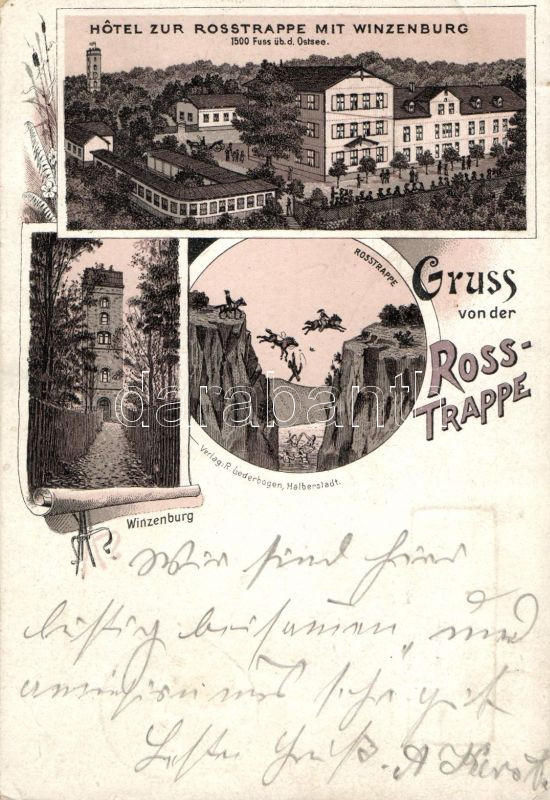 HÔTEL ZUR ROSSTRAPPE MIT WINZENBURG
1500 Fuss üb. d. Ostsee.
ROSSTRAPPE
Gruss
von der
ROSS-
TRAPPE
Verlag: R. Lederbogen, Halberstadt.
Winzenburg
darabanth
Wir sind hier
lustig beisamen, und
amüsiren uns sehr gut
Beste Grüß. A